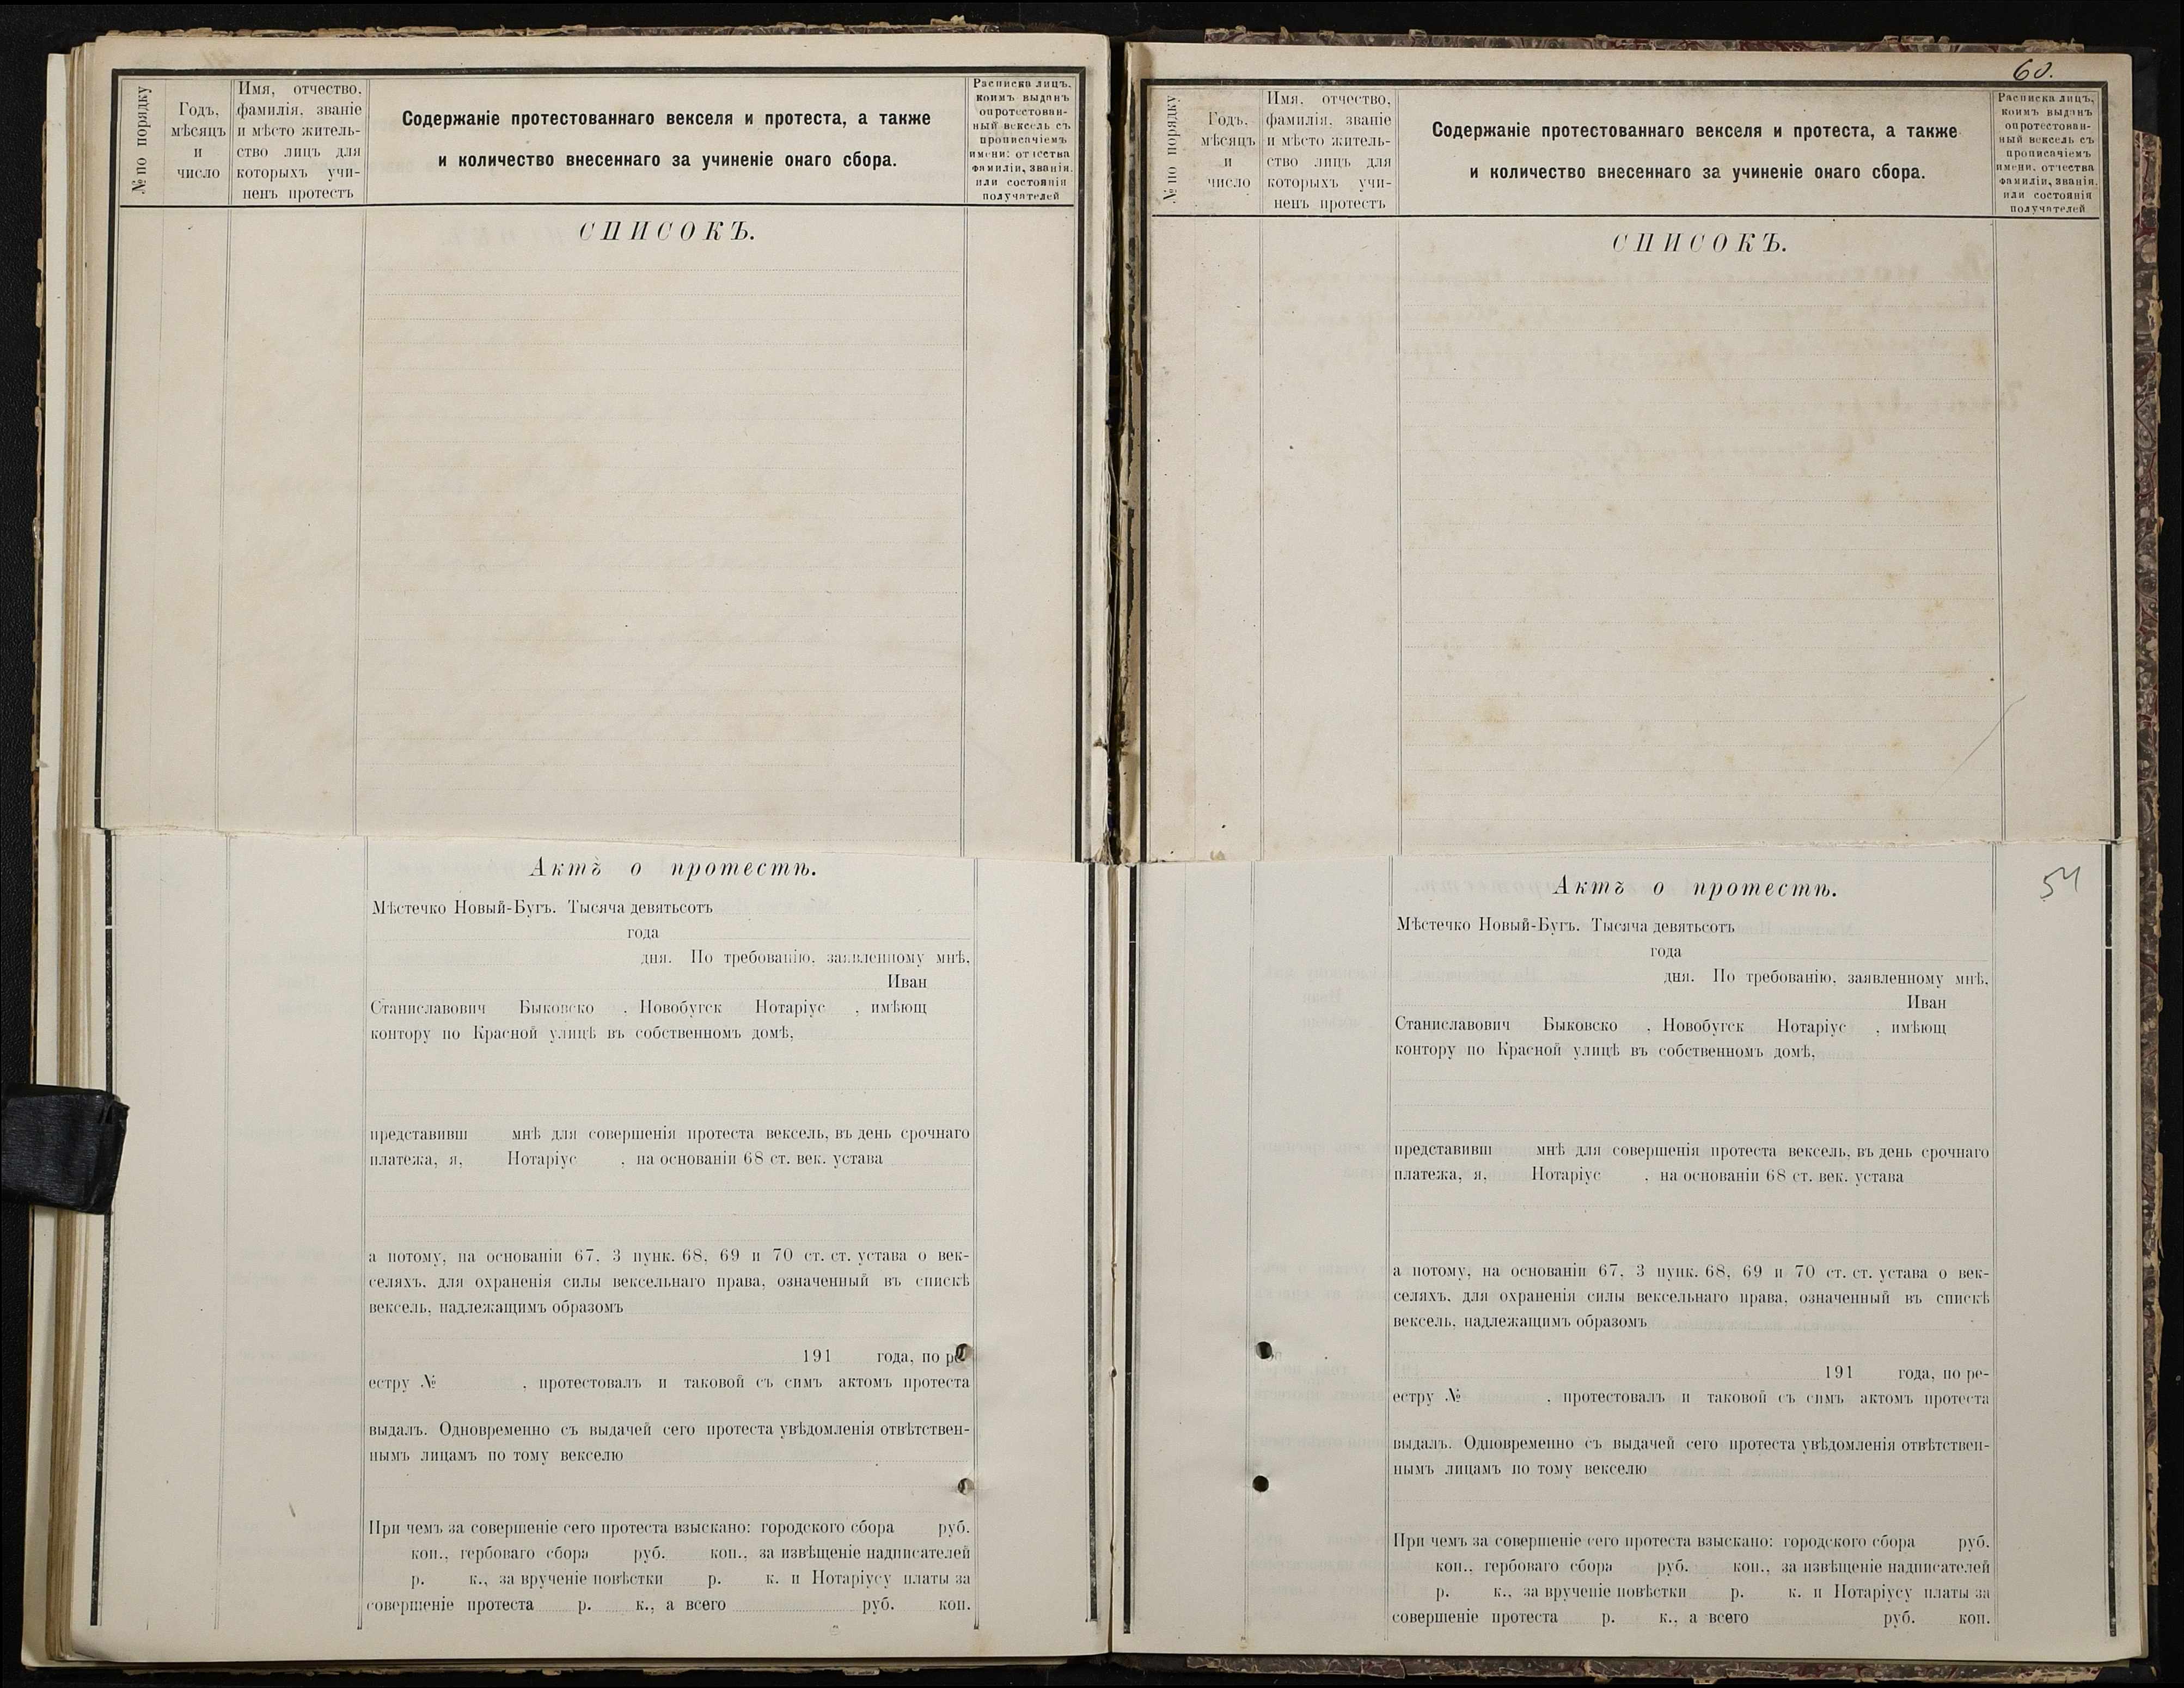 № по порядку
Годъ,
мѣсяцъ
и
число
Имя, отчество,
фамилія, званіе
и мѣсто житель-
ство лицъ для
которыхъ учи-
ненъ протестъ
Содержаніе протестованнаго векселя и протеста, а также
и количество внесеннаго за учиненіе онаго сбора.
Расписка лицъ,
коимъ выданъ
опротестован-
ный вексель съ
прописаніемъ
имени: отчества
фамиліи, званія.
или состоянія
получателей
СПИСОКЪ.
Актъ о протестѣ.
Мѣстечко Новый-Бугъ. Тысяча девятьсотъ
года
дня. По требованію, заявленному мнѣ,
Иван
Станиславович Быковско , Новобугск Нотаріус , имѣющ
контору по Красной улицѣ въ собственномъ домѣ,
представивш мнѣ для совершенія протеста вексель, въ день срочнаго
платежа, я, Нотаріус , на основаніи 68 ст. век. устава
а потому, на основаніи 67, 3 пунк. 68, 69 и 70 ст. ст. устава о век-
селяхъ, для охраненія силы вексельнаго права, означенный въ спискѣ
вексель, надлежащимъ образомъ
191 года, по ре
естру № , протестовалъ и таковой съ симъ актомъ протеста
выдалъ. Одновременно съ выдачей сего протеста увѣдомленія отвѣтствен-
нымъ лицамъ по тому векселю
При чемъ за совершеніе сего протеста взыскано: городского сбора руб.
коп., гербоваго сбора руб. коп., за извѣщеніе надписателей
р. к., за врученіе повѣстки р. к. и Нотаріусу платы за
совершеніе протеста р. к., а всего руб. коп.
60.
№ по порядку
Годъ,
мѣсяцъ
и
число
Имя, отчество,
фамилія, званіе
и мѣсто житель-
ство лицъ для
которыхъ учи-
ненъ протестъ
Содержаніе протестованнаго векселя и протеста, а также
и количество внесеннаго за учиненіе онаго сбора.
Расписка лицъ,
коимъ выданъ
опротестован-
ный вексель съ
прописаніемъ
имени, отчества
фамиліи, званія.
или состоянія
получателей
СПИСОКЪ.
54
Актъ о протестѣ.
Мѣстечко Новый-Бугъ. Тысяча девятьсотъ
года
дня. По требованію, заявленному мнѣ,
Иван
Станиславович Быковско , Новобугск Нотаріус , имѣющ
контору по Красной улицѣ въ собственномъ домѣ,
представивш мнѣ для совершенія протеста вексель, въ день срочнаго
платежа, я, Нотаріус , на основаніи 68 ст. век. устава
а потому, на основаніи 67, 3 пунк. 68, 69 и 70 ст. ст. устава о век-
селяхъ, для охраненія силы вексельнаго права, означенный въ спискѣ
вексель, надлежащимъ образомъ
191 года, по ре-
естру № , протестовалъ и таковой съ симъ актомъ протеста
выдалъ. Одновременно съ выдачей сего протеста увѣдомленія отвѣтствен-
нымъ лицамъ по тому векселю
При чемъ за совершеніе сего протеста взыскано: городского сбора руб.
коп., гербоваго сбора руб. коп., за извѣщеніе надписателей
р. к., за врученіе повѣстки р. к. и Нотаріусу платы за
совершеніе протеста р. к., а всего руб. коп.